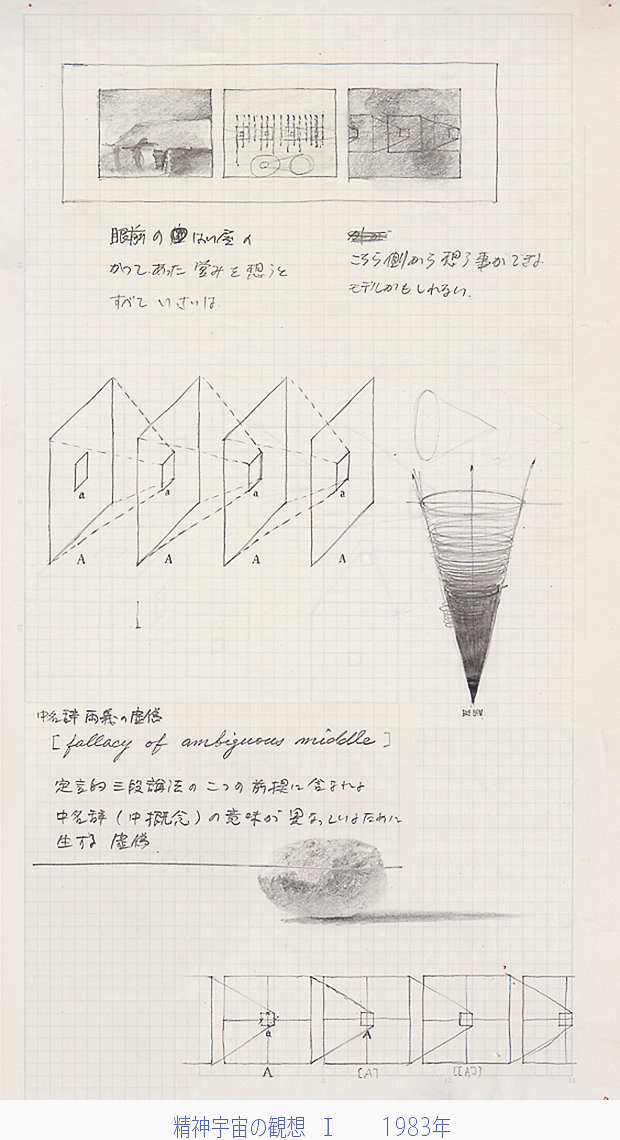 眼前の はない
かつて、あった 営みを想うと
すべて いさいは
こちら側から 想う事ができる
モデルかもしれない.
a a a a
A A A A
中名辞 両義の虚偽
[fallacy of ambiguous middle]
定立的三段論法の二つの前提に含まれる
中名辞(中概念)の意味が異なっているために
生ずる 虚偽.
a A
A [A] [[A]]
精神宇宙の観想 I 1983年